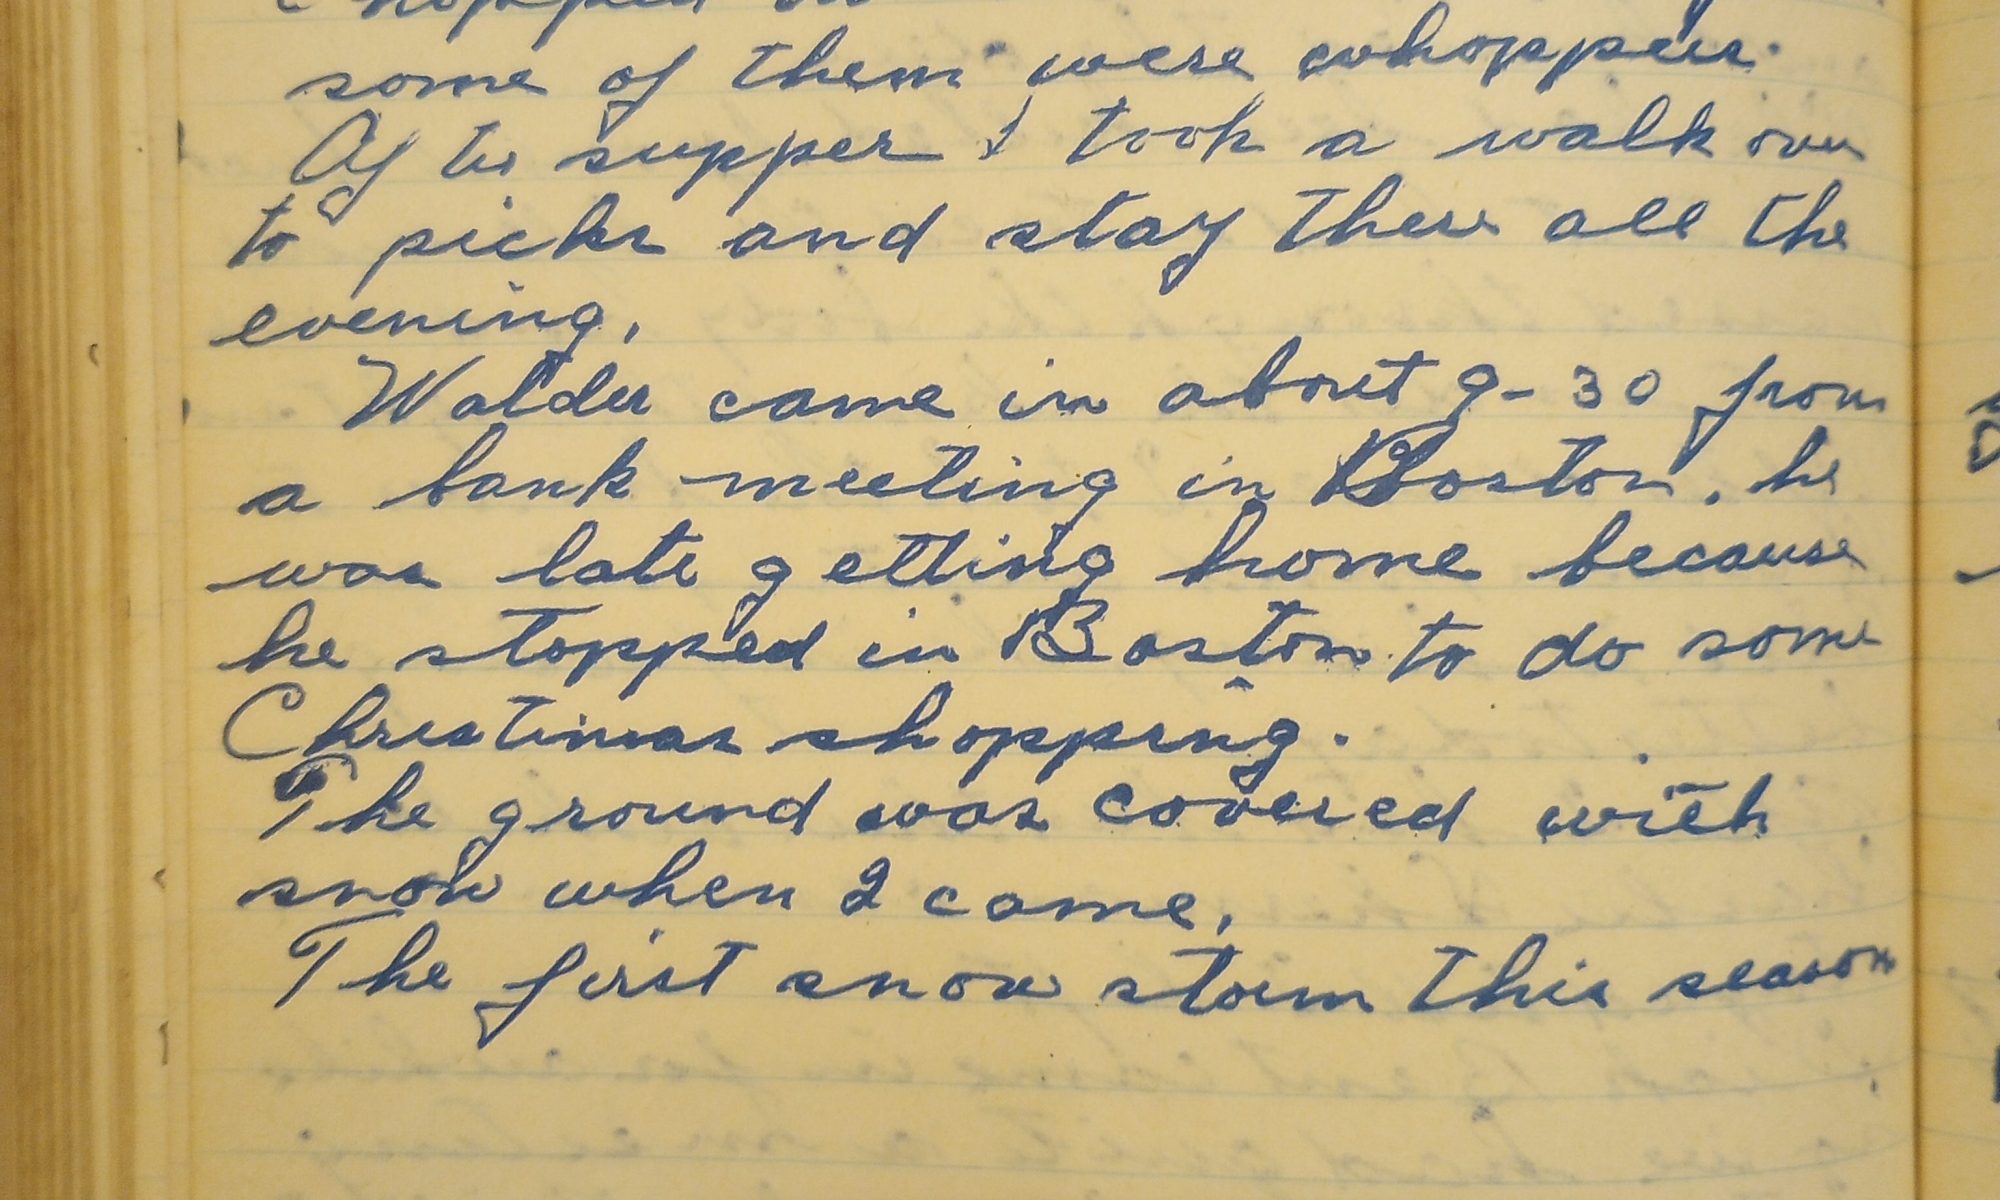 some of them were whoppers.
After supper I took a walk over
to picks and stay there all the
evening,
Walder came in about 9-30 from
a bank meeting in Boston. he
was late getting home because
he stopped in Boston to do some
Christmas shopping.
The ground was covered with
snow when I came,
The first snow storm this season